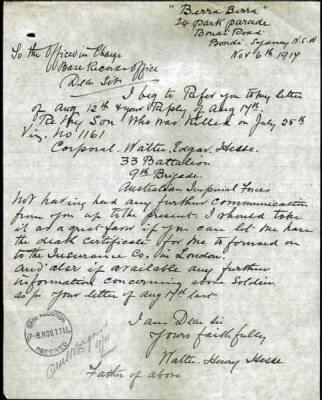 "Berra Berra"
24 Park Parade
Bondi Road
Bondi, Sydney N.S.W
Nov 6th 1917
To the Officer in Charge
Base Records Office
Dear Sir
I beg to Refer you to my letter
of Aug 12th & your Reply of Aug 17th.
Re My Son Who was Killed on July 25th
Viz. No 1161
Corporal Walter Edgar Hesse.
33 Battalion
9th Brigade.
Australian Imperial Forces
Not having had any further communication
from you up to the present. I should take
it as a great favor if you can let me have
the death certificate for me to forward on
to the Insurance Co. in London.
and also if available any further
information concerning above Soldier
as per your letter of Aug 17th last
I am Dear Sir
Yours faithfully
Walter Henry Hesse
Father of above
BASE RECORDS
8 NOV 17
RECEIVED